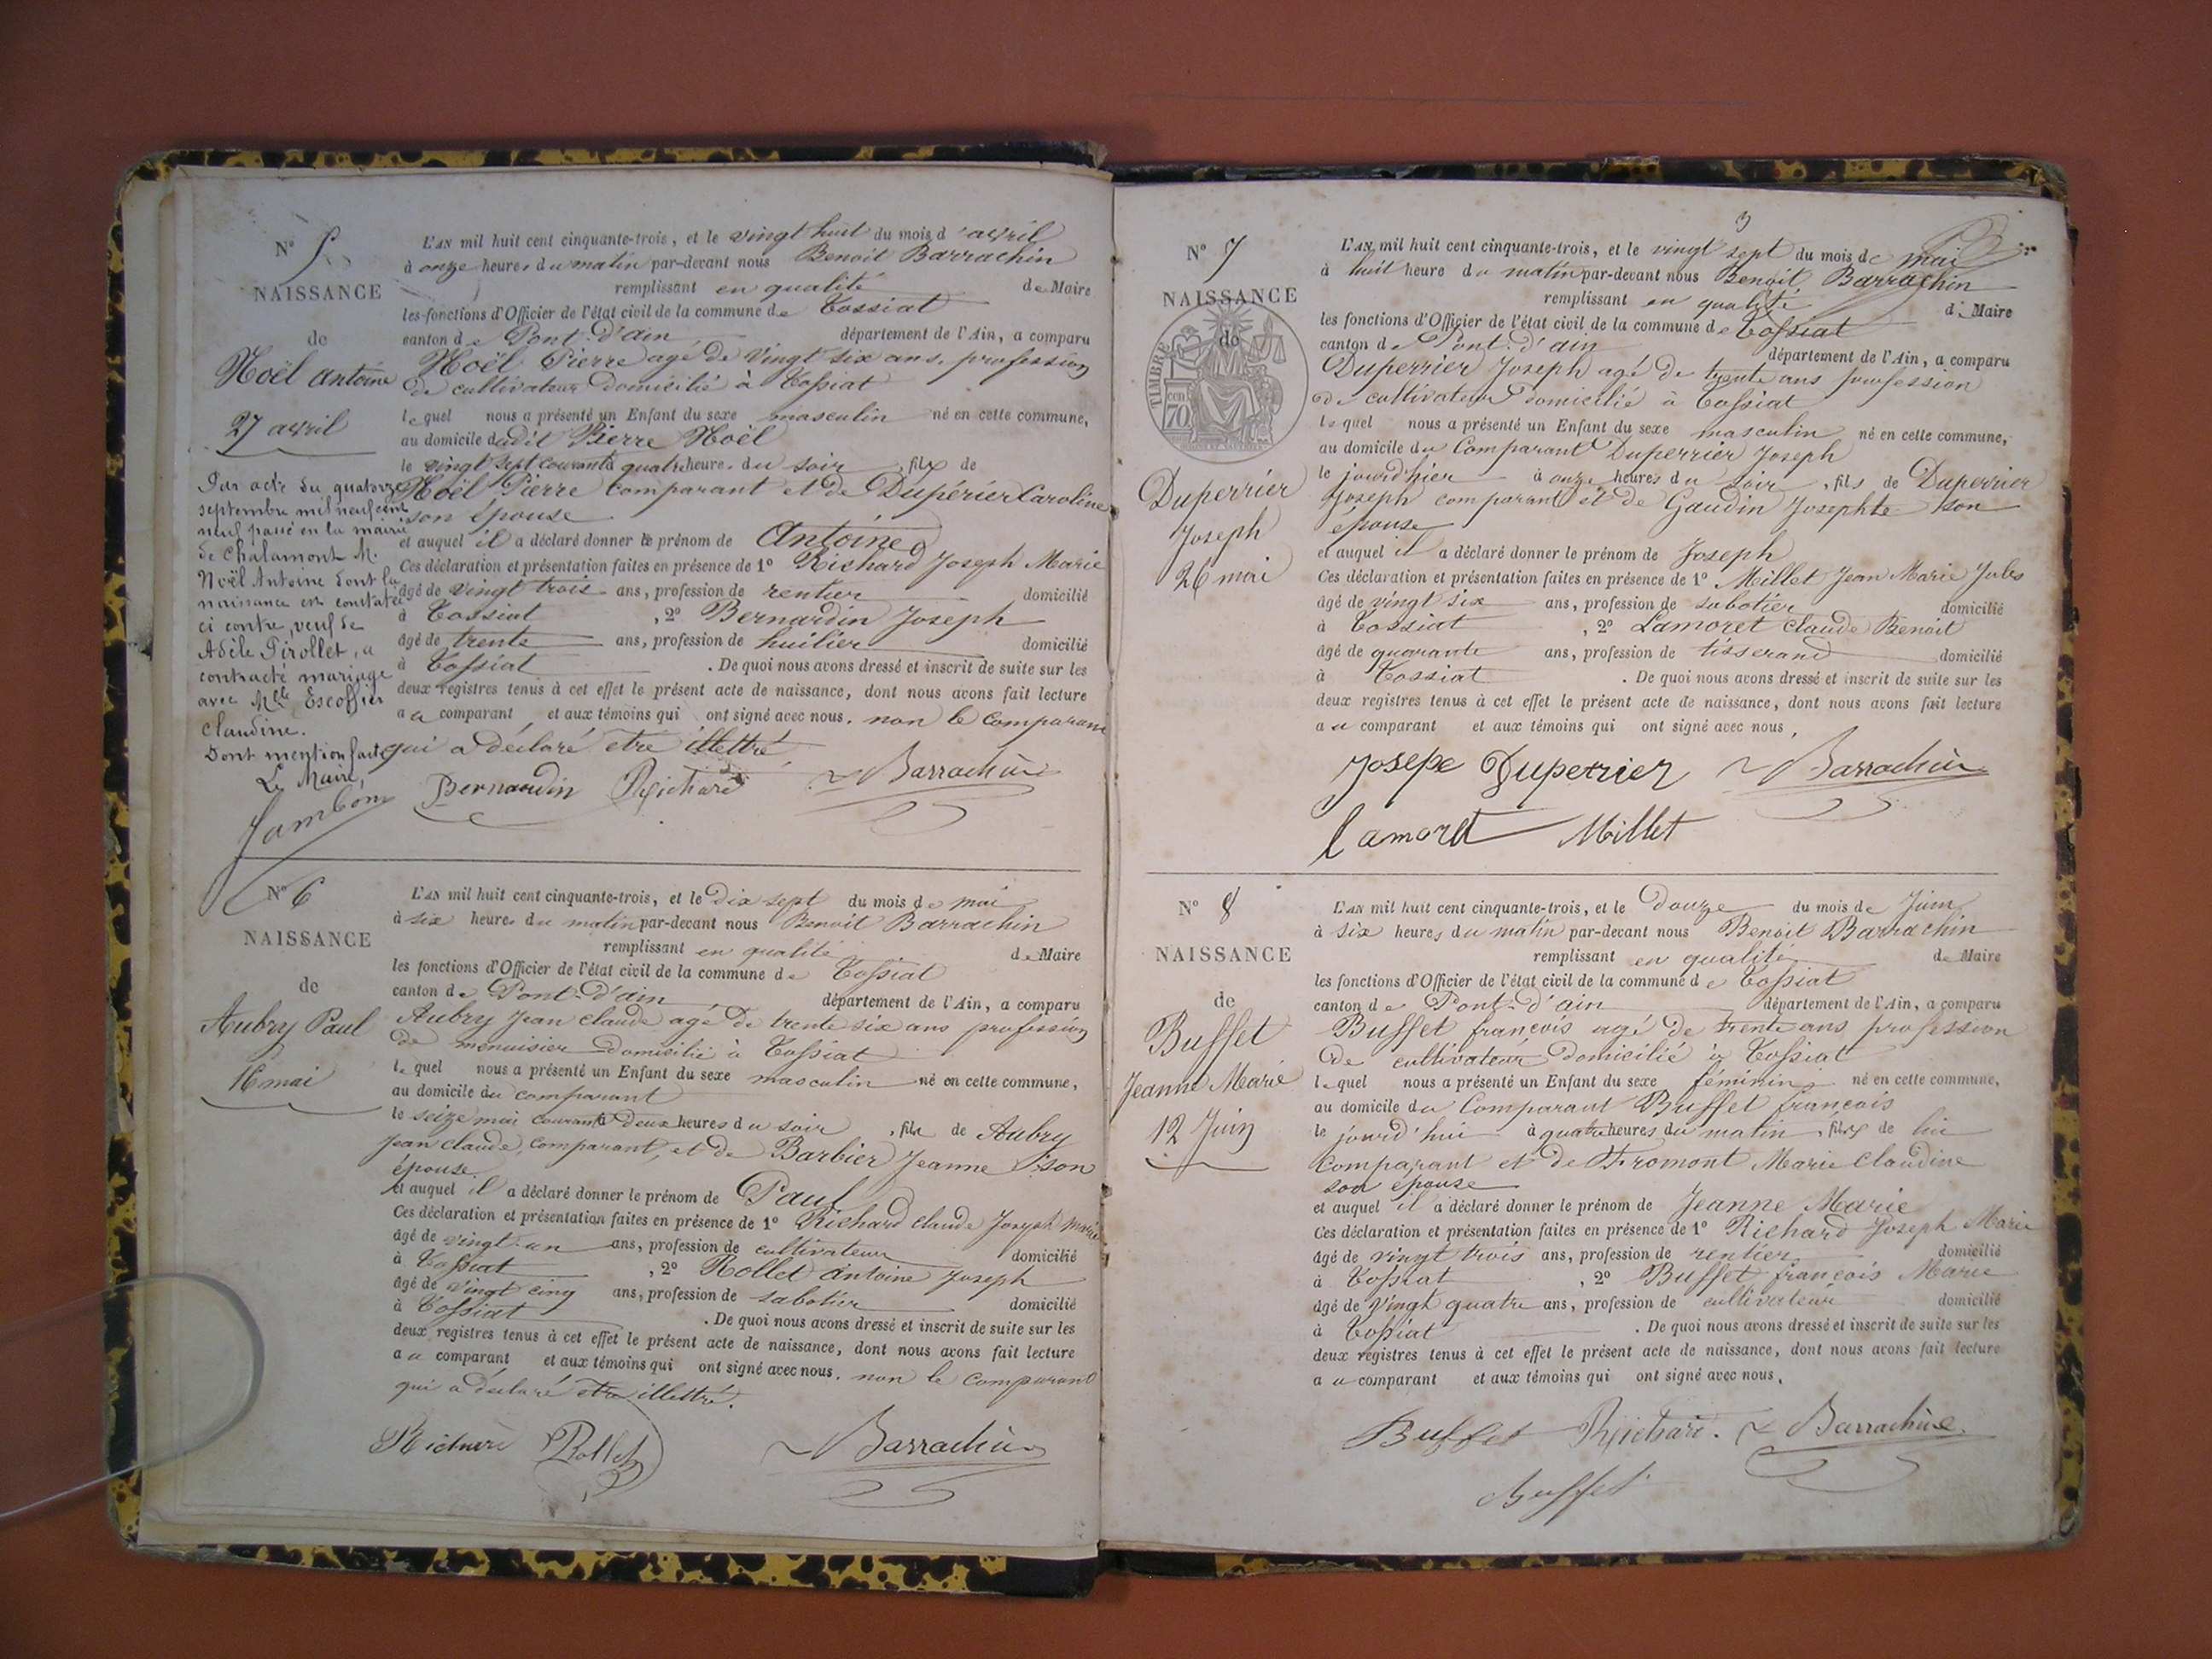 N° 5
NAISSANCE
de
Noël Antoine
27 avril
Par acte du quatorze
septembre mil neuf cent
neuf passé en la mairie
de Chalamont M.
Noël Antoine dont la
naissance est constatée
ci contre, veuf de
Adèle Pirollet, a
contracté mariage
avec Mlle Escoffier
Claudine.
Dont mention faite
Le Maire,
Jambon
L'AN mil huit cent cinquante-trois, et le vingt huit du mois d'avril
à onze heures du matin par-devant nous Benoit Barrachin
remplissant en qualité de Maire
les fonctions d'Officier de l'état civil de la commune de Tossiat
canton de Pont-d'ain département de l'Ain, a comparu
Noël Pierre agé de vingt six ans, profession
de cultivateur domicilié à Tossiat
lequel nous a présenté un Enfant du sexe masculin né en cette commune,
au domicile dudit Pierre Noël
le vingt sept courant à quatre heures du soir, fils de
Noël Pierre comparant et de Dupérier Caroline
son épouse
et auquel il a déclaré donner le prénom de Antoine
Ces déclaration et présentation faites en présence de 1° Richard Joseph Marie
âgé de vingt trois ans, profession de rentier domicilié
à Tossiat, 2° Bernardin Joseph
âgé de trente ans, profession de huilier domicilié
à Tossiat. De quoi nous avons dressé et inscrit de suite sur les
deux registres tenus à cet effet le présent acte de naissance, dont nous avons fait lecture
au comparant et aux témoins qui ont signé avec nous, non le comparant
qui a déclaré être illettré
Bernardin Richard Barrachin
N° 6
NAISSANCE
de
Aubry Paul
16 mai
L'AN mil huit cent cinquante-trois, et le dix sept du mois de mai
à six heures du matin par-devant nous Benoit Barrachin
remplissant en qualité de Maire
les fonctions d'Officier de l'état civil de la commune de Tossiat
canton de Pont-d'ain, département de l'Ain, a comparu
Aubry Jean Claude agé de trente six ans profession
de menuisier domicilié à Tossiat
lequel nous a présenté un Enfant du sexe masculin né en cette commune,
au domicile du comparant
le seize mai courant à deux heures du soir, fils de Aubry
Jean Claude, comparant, et de Barbier Jeanne son
épouse
et auquel il a déclaré donner le prénom de Paul
Ces déclaration et présentation faites en présence de 1° Richard Claude Joseph Marie
âgé de vingt-un ans, profession de cultivateur domicilié
à Tossiat, 2° Rollet Antoine Joseph
âgé de vingt cinq ans, profession de sabotier domicilié
à Tossiat. De quoi nous avons dressé et inscrit de suite sur les
deux registres tenus à cet effet le présent acte de naissance, dont nous avons fait lecture
au comparant et aux témoins qui ont signé avec nous, non le comparant
qui a déclaré être illettré.
Richard Rollet Barrachin
3
N° 7
NAISSANCE
de
TIMBRE
70 cen
Duperrier
Joseph
26 mai
L'AN mil huit cent cinquante-trois, et le vingt sept du mois de mai
à huit heure du matin par-devant nous Benoit Barrachin
remplissant en qualité de Maire
les fonctions d'Officier de l'état civil de la commune de Tossiat
canton de Pont-d'ain département de l'Ain, a comparu
Duperrier Joseph agé de trente ans profession
de cultivateur domicilié à Tossiat
lequel nous a présenté un Enfant du sexe masculin né en cette commune,
au domicile du Comparant Duperrier Joseph
le jourd'hier à onze heures du soir, fils de Duperrier
Joseph comparant et de Gaudin Josephte son
épouse
et auquel il a déclaré donner le prénom de Joseph
Ces déclaration et présentation faites en présence de 1° Millet Jean Marie Jules
âgé de vingt six ans, profession de sabotier domicilié
à Tossiat, 2° Lamoret Claude Benoit
âgé de quarante ans, profession de tisserand domicilié
à Tossiat. De quoi nous avons dressé et inscrit de suite sur les
deux registres tenus à cet effet le présent acte de naissance, dont nous avons fait lecture
au comparant et aux témoins qui ont signé avec nous,
Josepe Duperrier Barrachin
Lamoret Millet
N° 8
NAISSANCE
de
Buffet
Jeanne Marie
12 Juin
L'AN mil huit cent cinquante-trois, et le Douze du mois de Juin
à six heures du matin par-devant nous Benoit Barrachin
remplissant en qualité de Maire
les fonctions d'Officier de l'état civil de la commune de Tossiat
canton de Pont-d'ain département de l'Ain, a comparu
Buffet françois agé de trente ans profession
de cultivateur domicilié à Tossiat
lequel nous a présenté un Enfant du sexe féminin né en cette commune,
au domicile du Comparant Buffet françois
le jourd'hui à quatre heures du matin, fils de lui
comparant et de Fromont Marie Claudine
son épouse
et auquel il a déclaré donner le prénom de Jeanne Marie
Ces déclaration et présentation faites en présence de 1° Richard Joseph Marie
âgé de vingt trois ans, profession de rentier domicilié
à Tossiat, 2° Buffet françois Marie
âgé de vingt quatre ans, profession de cultivateur domicilié
à Tossiat. De quoi nous avons dressé et inscrit de suite sur les
deux registres tenus à cet effet le présent acte de naissance, dont nous avons fait lecture
au comparant et aux témoins qui ont signé avec nous,
Buffet Richard. Barrachin
Buffet